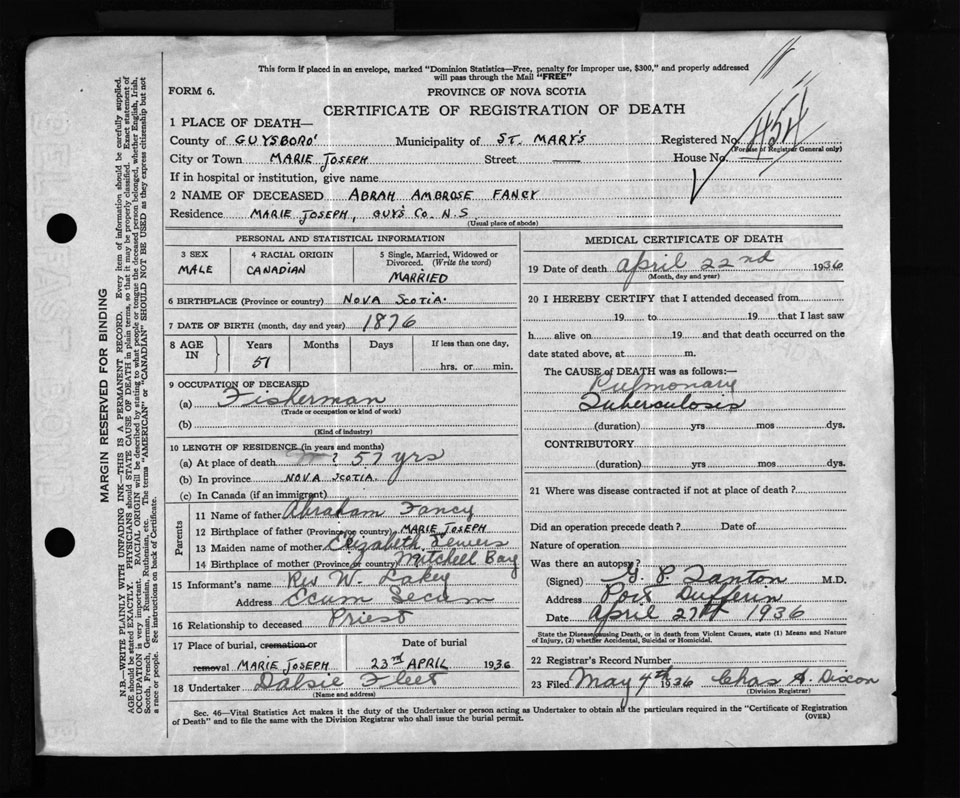 This form if placed in an envelope, marked "Dominion Statistics—Free, penalty for improper use, $300," and properly addressed
will pass through the Mail "FREE"
FORM 6.
PROVINCE OF NOVA SCOTIA
CERTIFICATE OF REGISTRATION OF DEATH
1 PLACE OF DEATH—
County of GUYSBORO' Municipality of ST. MARY'S Registered No. 454
(For use of Registrar General only)
City or Town MARIE JOSEPH Street — House No.
If in hospital or institution, give name
2 NAME OF DECEASED ABRAH AMBROSE FANCY
Residence MARIE JOSEPH, GUY'S CO. N.S
(Usual place of abode)
PERSONAL AND STATISTICAL INFORMATION
3 SEX 4 RACIAL ORIGIN 5 Single, Married, Widowed or
Divorced. (Write the word)
MALE CANADIAN MARRIED
6 BIRTHPLACE (Province or country) NOVA SCOTIA.
7 DATE OF BIRTH (month, day and year) 1876
8 AGE IN Years Months Days If less than one day,
57 hrs. or min.
9 OCCUPATION OF DECEASED
(a) Fisherman
(Trade or occupation or kind of work)
(b)
(Kind of industry)
10 LENGTH OF RESIDENCE (in years and months)
(a) At place of death ? 57 yrs
(b) In province NOVA SCOTIA.
(c) In Canada (if an immigrant)
Parents
11 Name of father Abraham Fancy
12 Birthplace of father (Province or country) MARIE JOSEPH
13 Maiden name of mother Elizabeth
14 Birthplace of mother (Province or country) Mitchell Bay
15 Informant's name Rev W. Lakey
Address Ecum Secum
16 Relationship to deceased Priest
17 Place of burial, cremation or Date of burial
removal MARIE JOSEPH 23rd APRIL 1936
18 Undertaker Dalsie Fleet
(Name and address)
MEDICAL CERTIFICATE OF DEATH
19 Date of death April 22nd 1936
(Month, day and year)
20 I HEREBY CERTIFY that I attended deceased from
19 to 19 that I last saw
h alive on 19 and that death occurred on the
date stated above, at m.
The CAUSE of DEATH was as follows:—
Pulmonary
Tuberculosis
(duration) yrs mos dys.
CONTRIBUTORY
(duration) yrs mos dys.
21 Where was disease contracted if not at place of death?
Did an operation precede death? Date of
Nature of operation
Was there an autopsy?
(Signed) G. P. Tanton M.D.
Address Port Dufferin
Date April 27th 1936
State the Disease causing Death, or in death from Violent Causes, state (1) Means and Nature
of Injury, (2) whether Accidental, Suicidal or Homicidal.
22 Registrar's Record Number
23 Filed May 4th 1936 Chas A. Dixon
(Division Registrar)
Sec. 46—Vital Statistics Act makes it the duty of the Undertaker or person acting as Undertaker to obtain all the particulars required in the "Certificate of Registration
of Death" and to file the same with the Division Registrar who shall issue the burial permit.
(OVER)
MARGIN RESERVED FOR BINDING
N.B.—WRITE PLAINLY WITH UNFADING INK—THIS IS A PERMANENT RECORD. Every item of information should be carefully supplied.
AGE should be stated EXACTLY. PHYSICIANS should STATE CAUSE OF DEATH in plain terms, so that it may be properly classified. Exact statement of
OCCUPATION is very important. RACIAL ORIGIN will be described by stating to what people or tongue the deceased person belonged, whether English, Irish,
Scotch, French, German, Russian, Ruthenian, etc. The terms "AMERICAN" or "CANADIAN" SHOULD NOT BE USED as they express citizenship but not
a race or people. See instructions on back of Certificate.